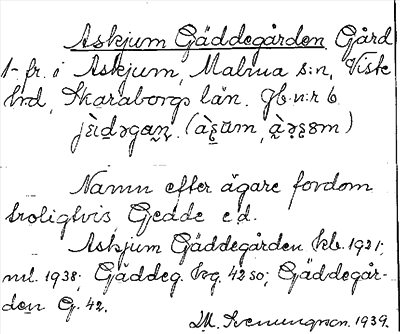 Askjum Gäddegården Gård
1- fr. i Askjum, Malma s:n, Viste
hrd, Skaraborgs län. Jb. n:r 6.
Namn efter ägare fordom
troligtvis Gedde e.d.
Askjum Gäddegården kb. 1921;
ml. 1938; Gäddeg. hg. 4250; Gäddegår-
den G. 42.
M. Svenungson. 1939.